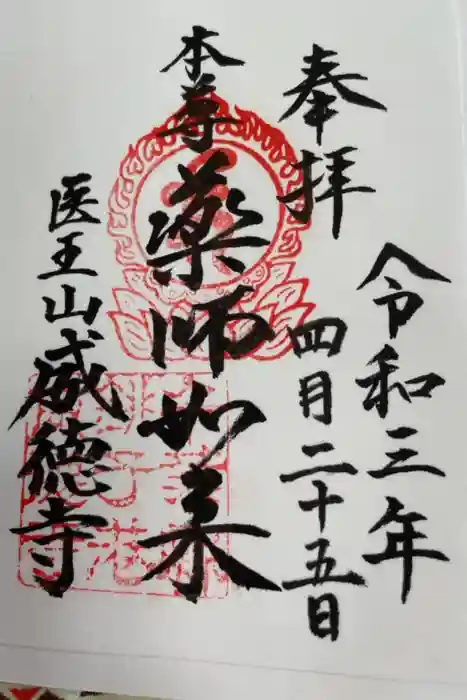 奉拝
令和三年
四月二十五日
本尊
薬師如来
医王山威徳寺